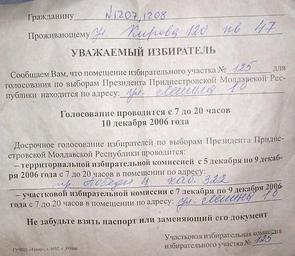 Гражданину №1207, 1208
Проживающему ул. Кирова 120 кв 47
УВАЖАЕМЫЙ ИЗБИРАТЕЛЬ
Сообщаем Вам, что помещение избирательного участка № 125 для
голосования по выборам Президента Приднестровской Молдавской Рес-
публики находится по адресу: ул. Ленина 10
Голосование проводится с 7 до 20 часов
10 декабря 2006 года
Досрочное голосование избирателей по выборам Президента Придне-
стровской Молдавской Республики проводится:
– территориальной избирательной комиссией с 5 декабря по 9 декаб-
ря 2006 года с 7 до 20 часов в помещении по адресу:
пр. Победы 4 каб. 322
– участковой избирательной комиссией с 7 декабря по 9 декабря 2006
года с 7 до 20 часов в помещении по адресу: ул. Ленина 10
Не забудьте взять паспорт или заменяющий его документ
Участковая избирательная комиссия
избирательного участка № 125